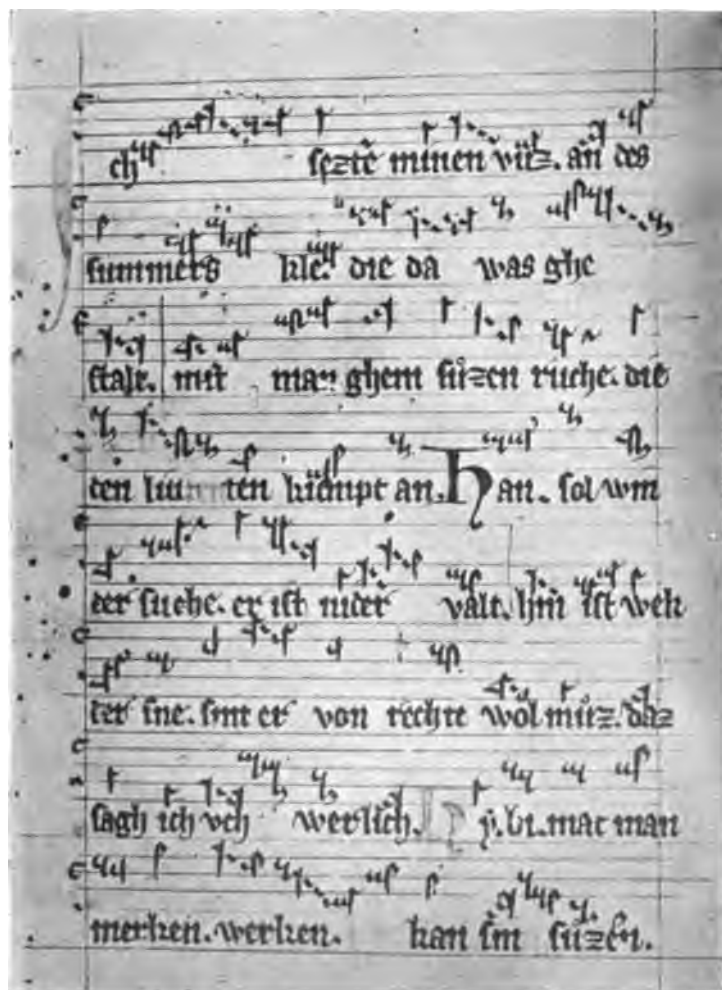 ch sezte minen vuͦz. an des
summers kle. die da was ghe
stalt. mit man ghem suͤzen ruche. die
ten kumpt an. Han. sol win
ter suche. er ist nider valt. him ist wek
ter sne. sint er von rechte wol muͦz. daz
sagh ich vch werlich. bi. mac man
merken. werken. kan sin suͤzen.